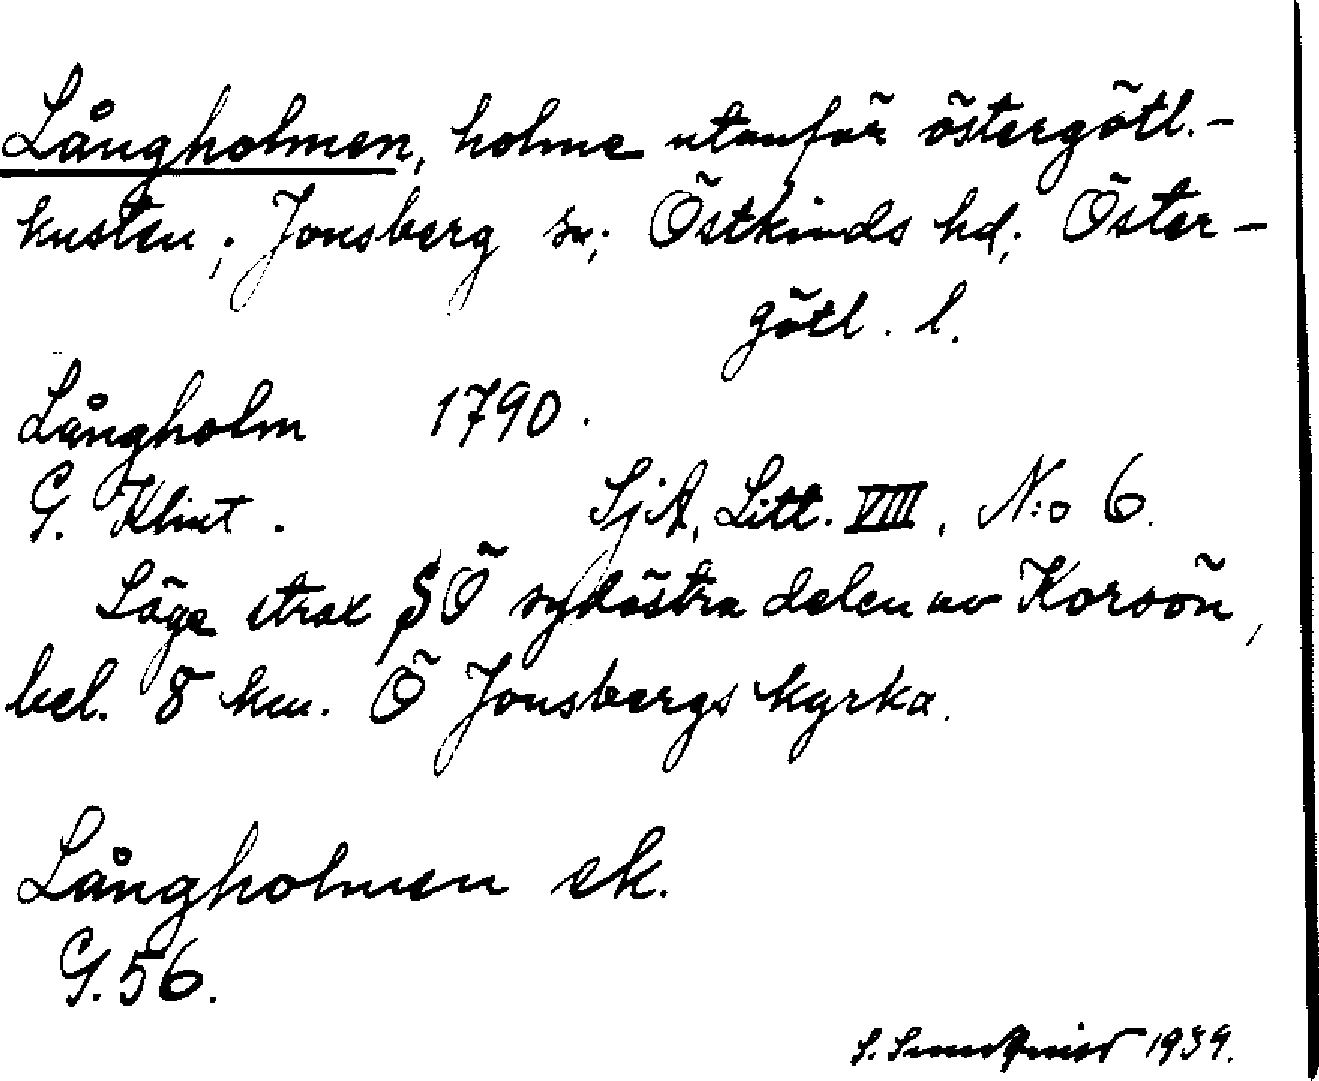 Långholmen, holme utanför östergötl.-
kusten; Jonsberg sn; Östkinds hd; Öster-
götl. l.
Långholm 1790.
G. Klint. SjA, Litt. VIII, N:o 6.
Läge strax SÖ sydöstra delen av Korsön,
bel. 8 km. Ö Jonsbergs kyrka.
Långholmen ek.
G. 56.
S. 1939.